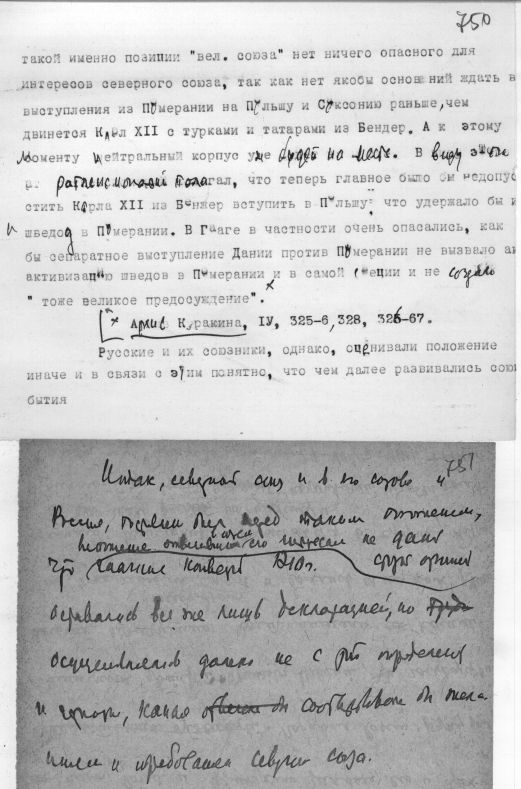 750
такой именно позиции "вел. союза" нет ничего опасного для
интересов северного союза, так как нет якобы оснований ждать в
выступления из Померании на Польшу и Саксонию раньше, чем
двинется Карл XII с турками и татарами из Бендер. А к этому
моменту нейтральный корпус уже будет на месте. В виду этого
полагал, что теперь главное было бы недопус
стить Карла XII из Бендер вступить в Польшу, что удержало бы и
и шведов в Померании. В Гааге в частности очень опасались, как
бы сепаратное выступление Дании против Померании не вызвало ак
активизацию шведов в Померании и в самой Швеции и не создало
" тоже великое предосуждение". x
x Архив Куракина, IУ, 325-6, 328, 326-67.
Русские и их союзники, однако, оценивали положение
иначе и в связи с этим понятно, что чем далее развивались соы
бытия
751
Итак, северный союз и в его составе и
Россия, был перед таким положением,
не дают
что Гаагские 1710 г.
оставались все же лишь декларацией, но
осуществлялись далеко не с той определен
и какая бы соответствовала бы жела
ниям и требованиям северного союза.